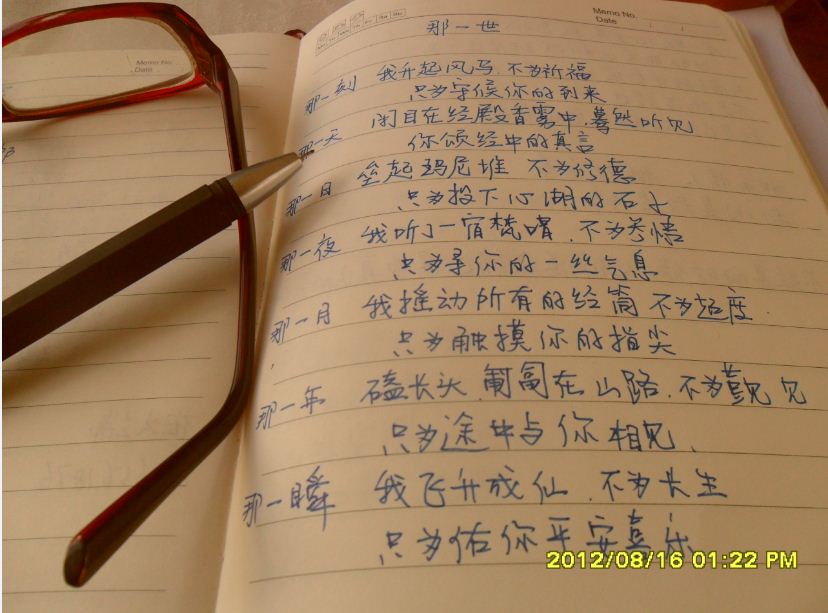 Memo No.
Date
Memo No.
Date
那一世
那一刻 我升起风马,不为祈福
只为守候你的到来
那一天 闭目在经殿香雾中,蓦然听见
你颂经中的真言
那一日 垒起玛尼堆 不为修德
只为投下心湖的石子
那一夜 我听了一宿梵唱,不为参悟
只为寻你的一丝气息
那一月 我摇动所有的经筒 不为超度
只为触摸你的指尖
那一年 磕长头,匍匐在山路,不为觐见
只为途中与你相见,
那一瞬 我飞升成仙,不为长生
只为佑你平安喜乐
2012/08/16 01:22 PM